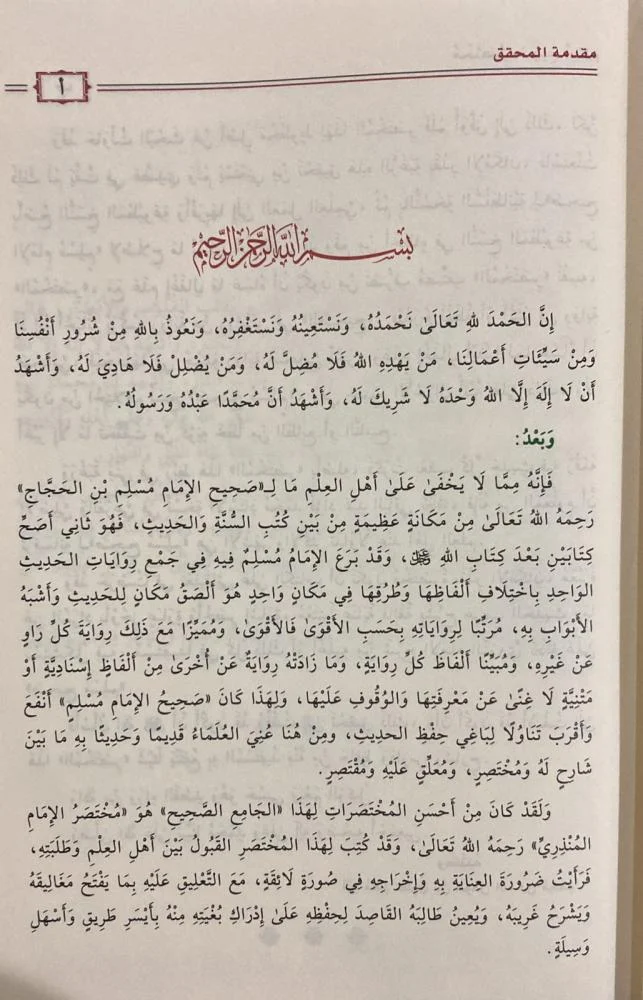 مقدمة المحقق
أ
بسم الله الرحمن الرحيم
إِنَّ الحَمْدَ لِلهِ تَعَالَىٰ نَحْمَدُهُ، وَنَسْتَعِينُهُ وَنَسْتَغْفِرُهُ، وَنَعُوذُ بِاللهِ مِنْ شُرُورِ أَنْفُسِنَا
وَمِنْ سَيِّئَاتِ أَعْمَالِنَا، مَنْ يَهْدِهِ اللهُ فَلَا مُضِلَّ لَهُ، وَمَنْ يُضْلِلْ فَلَا هَادِيَ لَهُ، وَأَشْهَدُ
أَنْ لَا إِلَهَ إِلَّا اللهُ وَحْدَهُ لَا شَرِيكَ لَهُ، وَأَشْهَدُ أَنَّ مُحَمَّدًا عَبْدُهُ وَرَسُولُهُ.
وَبَعْدُ:
فَإِنَّهُ مِمَّا لَا يَخْفَىٰ عَلَىٰ أَهْلِ العِلْمِ مَا لِـ«صَحِيحِ الإِمَامِ مُسْلِمِ بْنِ الحَجَّاجِ»
رَحِمَهُ اللهُ تَعَالَىٰ مِنْ مَكَانَةٍ عَظِيمَةٍ مِنْ بَيْنِ كُتُبِ السُّنَّةِ وَالحَدِيثِ، فَهُوَ ثَانِي أَصَحِّ
كِتَابَيْنِ بَعْدَ كِتَابِ اللهِ ﷻ، وَقَدْ بَرَعَ الإِمَامُ مُسْلِمٌ فِيهِ فِي جَمْعِ رِوَايَاتِ الحَدِيثِ
الوَاحِدِ بِاخْتِلَافِ أَلْفَاظِهَا وَطُرُقِهَا فِي مَكَانٍ وَاحِدٍ هُوَ أَلْصَقُ مَكَانٍ لِلحَدِيثِ وَأَشْبَهُ
الأَبْوَابِ بِهِ، مُرَتِّبًا لِرِوَايَاتِهِ بِحَسَبِ الأَقْوَىٰ فَالأَقْوَىٰ، وَمُمَيِّزًا مَعَ ذَلِكَ رِوَايَةَ كُلِّ رَاوٍ
عَنْ غَيْرِهِ، وَمُبَيِّنًا أَلْفَاظَ كُلِّ رِوَايَةٍ، وَمَا زَادَتْهُ رِوَايَةٌ عَنْ أُخْرَىٰ مِنْ أَلْفَاظٍ إِسْنَادِيَّةٍ أَوْ
مَتْنِيَّةٍ لَا غِنًىٰ عَنْ مَعْرِفَتِهَا وَالوُقُوفِ عَلَيْهَا، وَلِهَذَا كَانَ «صَحِيحُ الإِمَامِ مُسْلِمٍ» أَنْفَعَ
وَأَقْرَبَ تَنَاوُلًا لِبَاغِي حِفْظِ الحَدِيثِ، ومِنْ هُنَا عُنِيَ العُلَمَاءُ قَدِيمًا وَحَدِيثًا بِهِ مَا بَيْنَ
شَارِحٍ لَهُ وَمُخْتَصِرٍ، وَمُعَلِّقٍ عَلَيْهِ وَمُقْتَصِرٍ.
وَلَقَدْ كَانَ مِنْ أَحْسَنِ المُخْتَصَرَاتِ لِهَذَا «الجَامِعِ الصَّحِيحِ» هُوَ «مُخْتَصَرُ الإِمَامِ
المُنْذِرِيِّ» رَحِمَهُ اللهُ تَعَالَىٰ، وَقَدْ كُتِبَ لِهَذَا المُخْتَصَرِ القَبُولُ بَيْنَ أَهْلِ العِلْمِ وَطَلَبَتِهِ،
فَرَأَيْتُ ضَرُورَةَ العِنَايَةِ بِهِ وَإِخْرَاجِهِ فِي صُورَةٍ لَائِقَةٍ، مَعَ التَّعْلِيقِ عَلَيْهِ بِمَا يَفْتَحُ مَغَالِيقَهُ
وَيَشْرَحُ غَرِيبَهُ، وَيُعِينُ طَالِبَهُ القَاصِدَ لِحِفْظِهِ عَلَىٰ إِدْرَاكِ بُغْيَتِهِ مِنْهُ بِأَيْسَرِ طَرِيقٍ وَأَسْهَلِ
وَسِيلَةٍ.